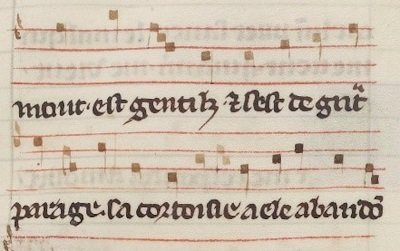 mout · est gentilz · ⁊ sest de grãt
parage · sa cortoisie a ele abandõ